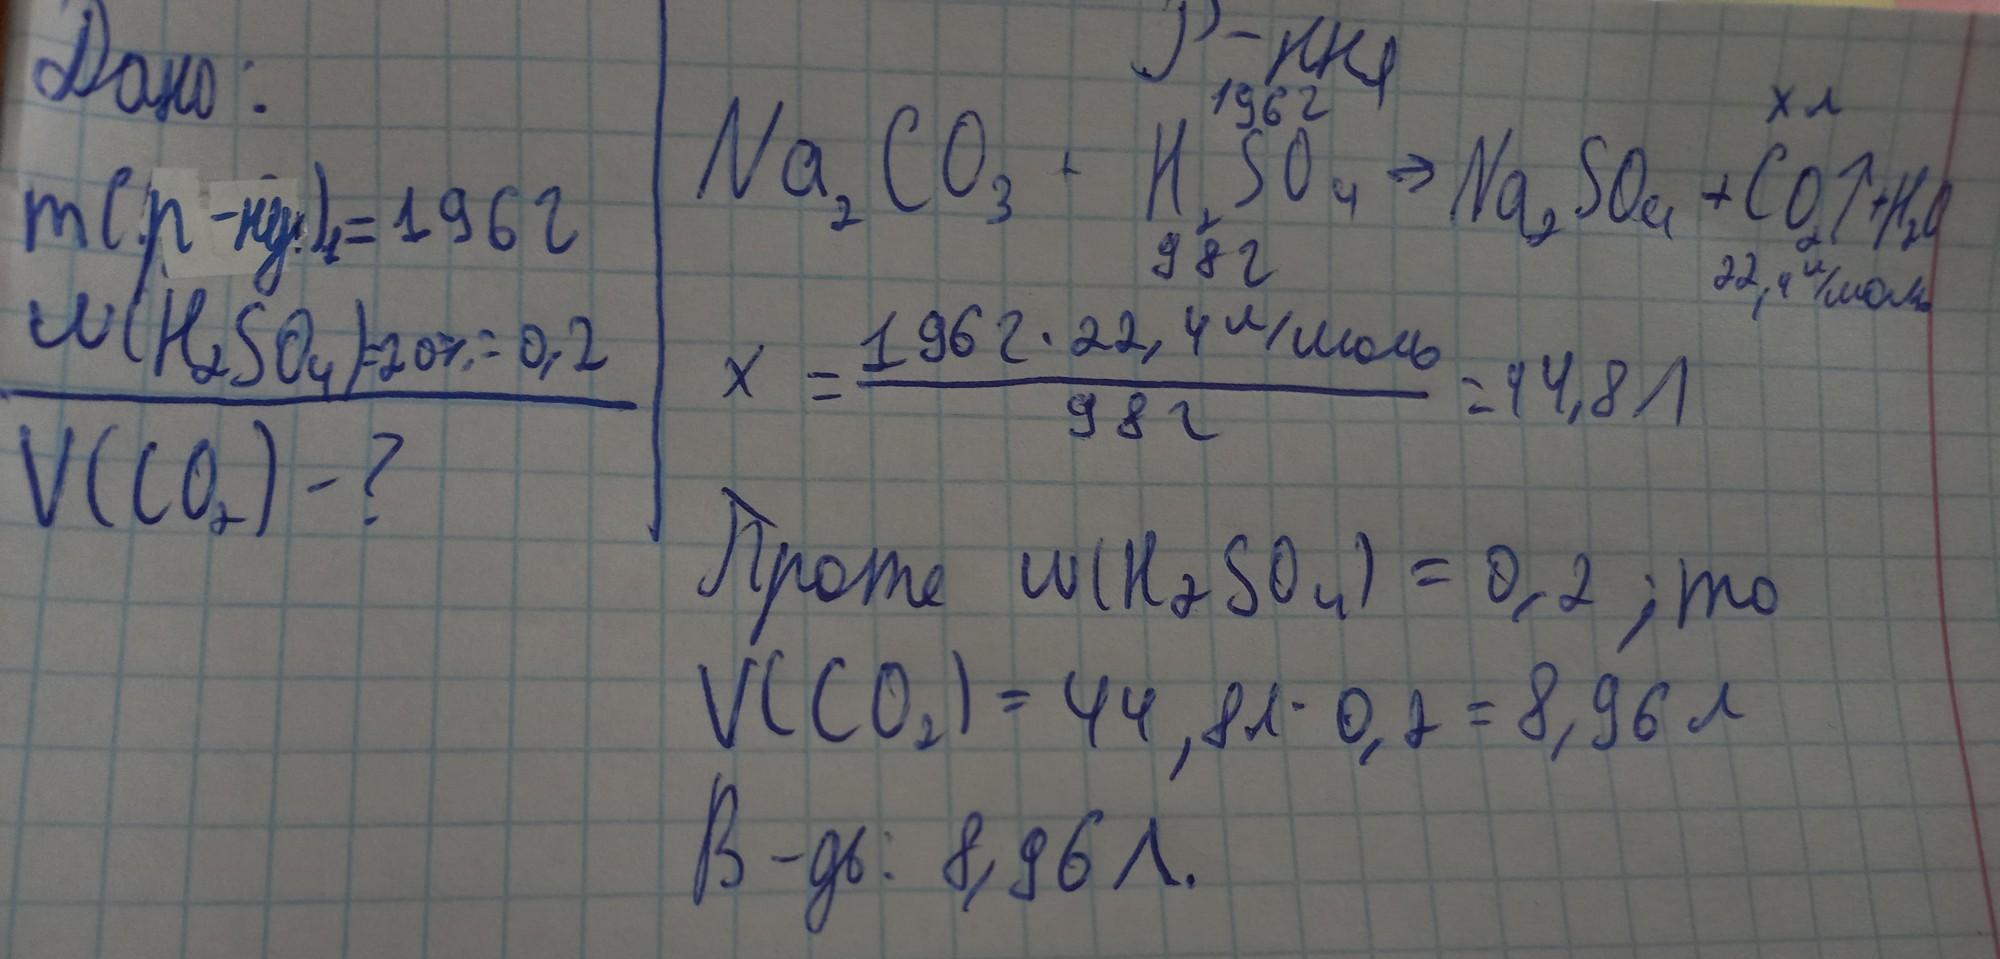 Дано:
m(р-ну)=196г
w(H₂SO₄)=20%=0,2
V(CO₂)-?
Р-ння
196г
x л
Na₂CO₃ + H₂SO₄ → Na₂SO₄ + CO₂↑ + H₂O
98г
22,4 л/моль
x = 196г · 22,4 л/моль / 98г = 44,8 Л
Проте w(H₂SO₄) = 0,2 ; то
V(CO₂) = 44,8л · 0,2 = 8,96 л
В-дь: 8,96 л.